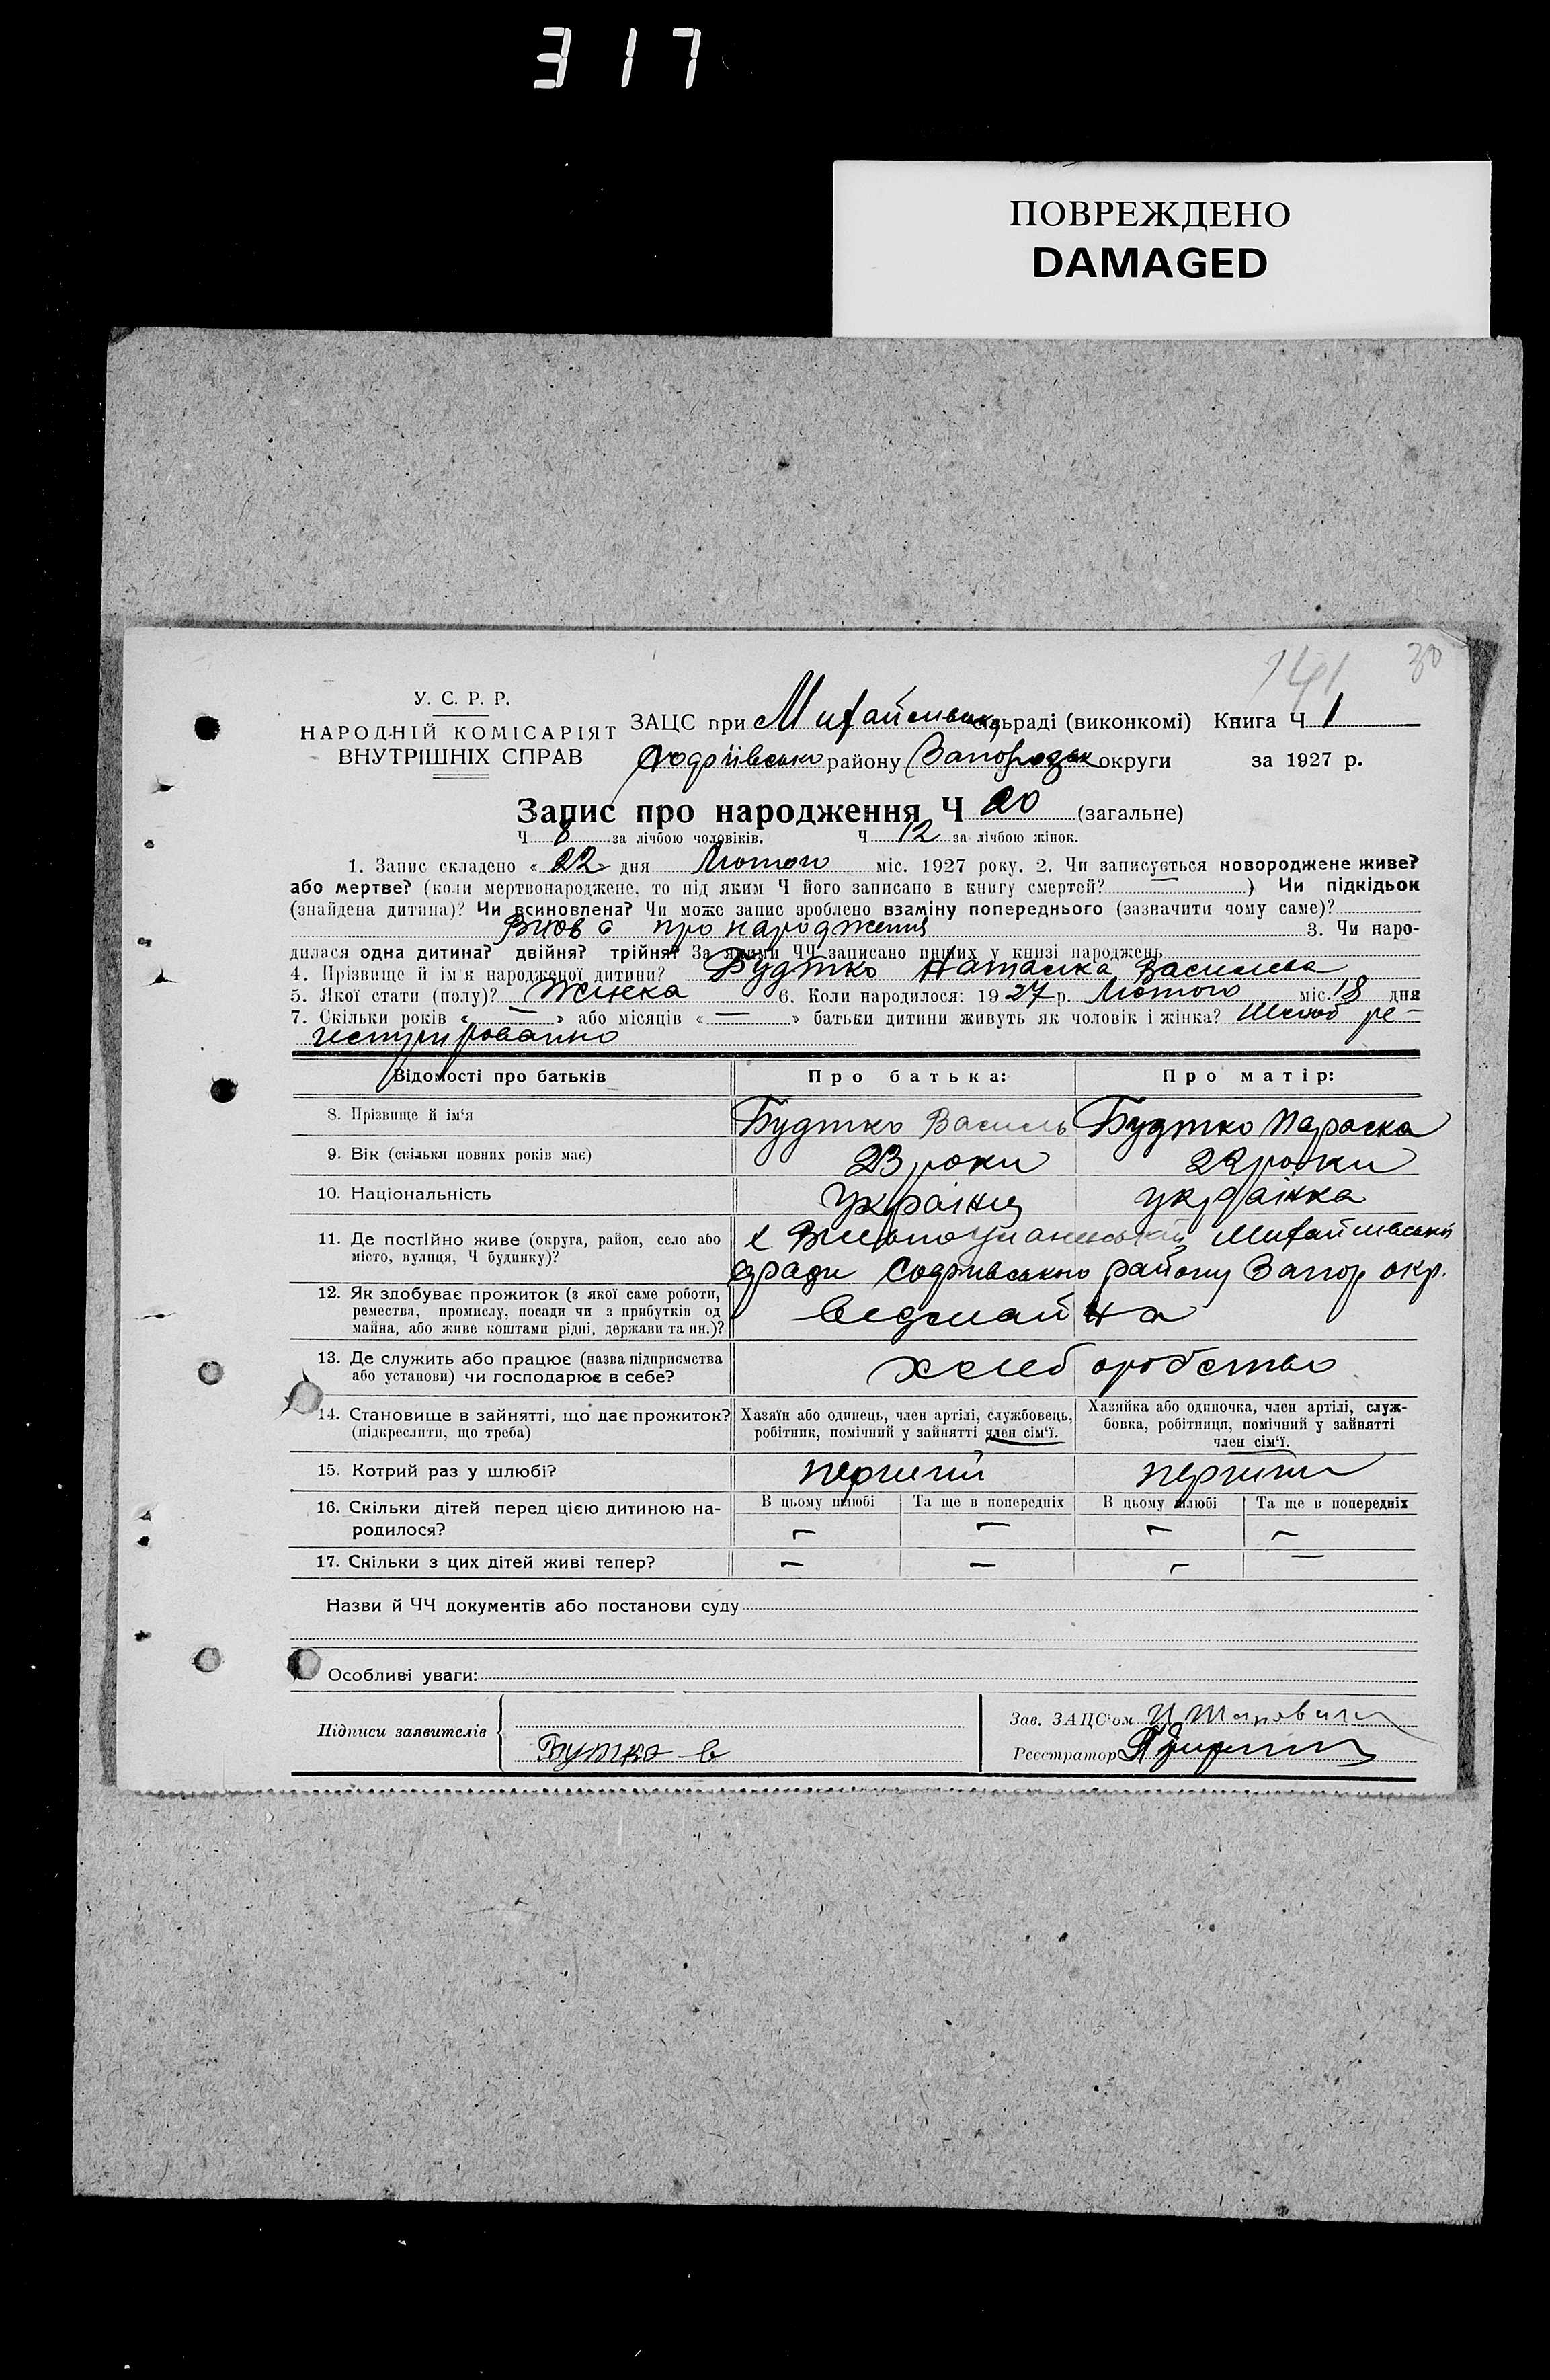 317
ПОВРЕЖДЕНО
DAMAGED
141 30
У. С. Р. Р.
НАРОДНІЙ КОМІСАРІЯТ
ВНУТРІШНІХ СПРАВ
ЗАЦС при Михайлівській сільраді (виконкомі) Книга Ч 1
району Запорізьк округи за 1927 р.
Запис про народження Ч 20 (загальне)
Ч 8 за лічбою чоловіків. Ч 12 за лічбою жінок.
1. Запис складено « 22 » дня Лютого міс. 1927 року. 2. Чи записується новороджене живе?
або мертве? (коли мертвонароджене, то під яким Ч його записано в книгу смертей? — ) Чи підкідьок
(знайдена дитина)? Чи всиновлена? Чи може запис зроблено взаміну попереднього (зазначити чому саме)?
про народження 3. Чи наро-
дилася одна дитина? двійня? трійня? За якими ЧЧ записано инших у книзі народжень
4. Прізвище й ім'я народженої дитини? Будтко Наталка Василева
5. Якої стати (полу)? Жінка 6. Коли народилося: 1927 р. Лютого міс. 18 дня
7. Скільки років « — » або місяців « — » батьки дитини живуть як чоловік і жінка? Шлюб ре-
гестрировано
Відомості про батьків Про батька: Про матір:
8. Прізвище й ім'я Будтко Василь Будтко Параска
9. Вік (скільки повних років має) 23 роки 22 роки
10. Національність українц українка
11. Де постійно живе (округа, район, село або
місто, вулиця, Ч будинку)?
Михайлівської
с/ради району Запор окр.
12. Як здобуває прожиток (з якої саме роботи,
ремества, промислу, посади чи з прибутків од
майна, або живе коштами рідні, держави та ин.)?
від майна
13. Де служить або працює (назва підприємства
або установи) чи господарює в себе?
хлеборобство
14. Становище в зайнятті, що дає прожиток?
(підкреслити, що треба)
Хазяїн або одинець, член артілі, службовець,
робітник, помічний у зайнятті член сім'ї.
Хазяйка або одиночка, член артілі, служ-
бовка, робітниця, помічний у зайнятті
член сім'ї.
15. Котрий раз у шлюбі? перший перший
16. Скільки дітей перед цією дитиною на-
родилося?
В цьому шлюбі Та ще в попередніх В цьому шлюбі Та ще в попередніх
— — — —
17. Скільки з цих дітей живі тепер? — — — —
Назви й ЧЧ документів або постанови суду
Особливі уваги:
Підписи заявителів
Бутко в
Зав. ЗАЦС'ом
Реєстратор